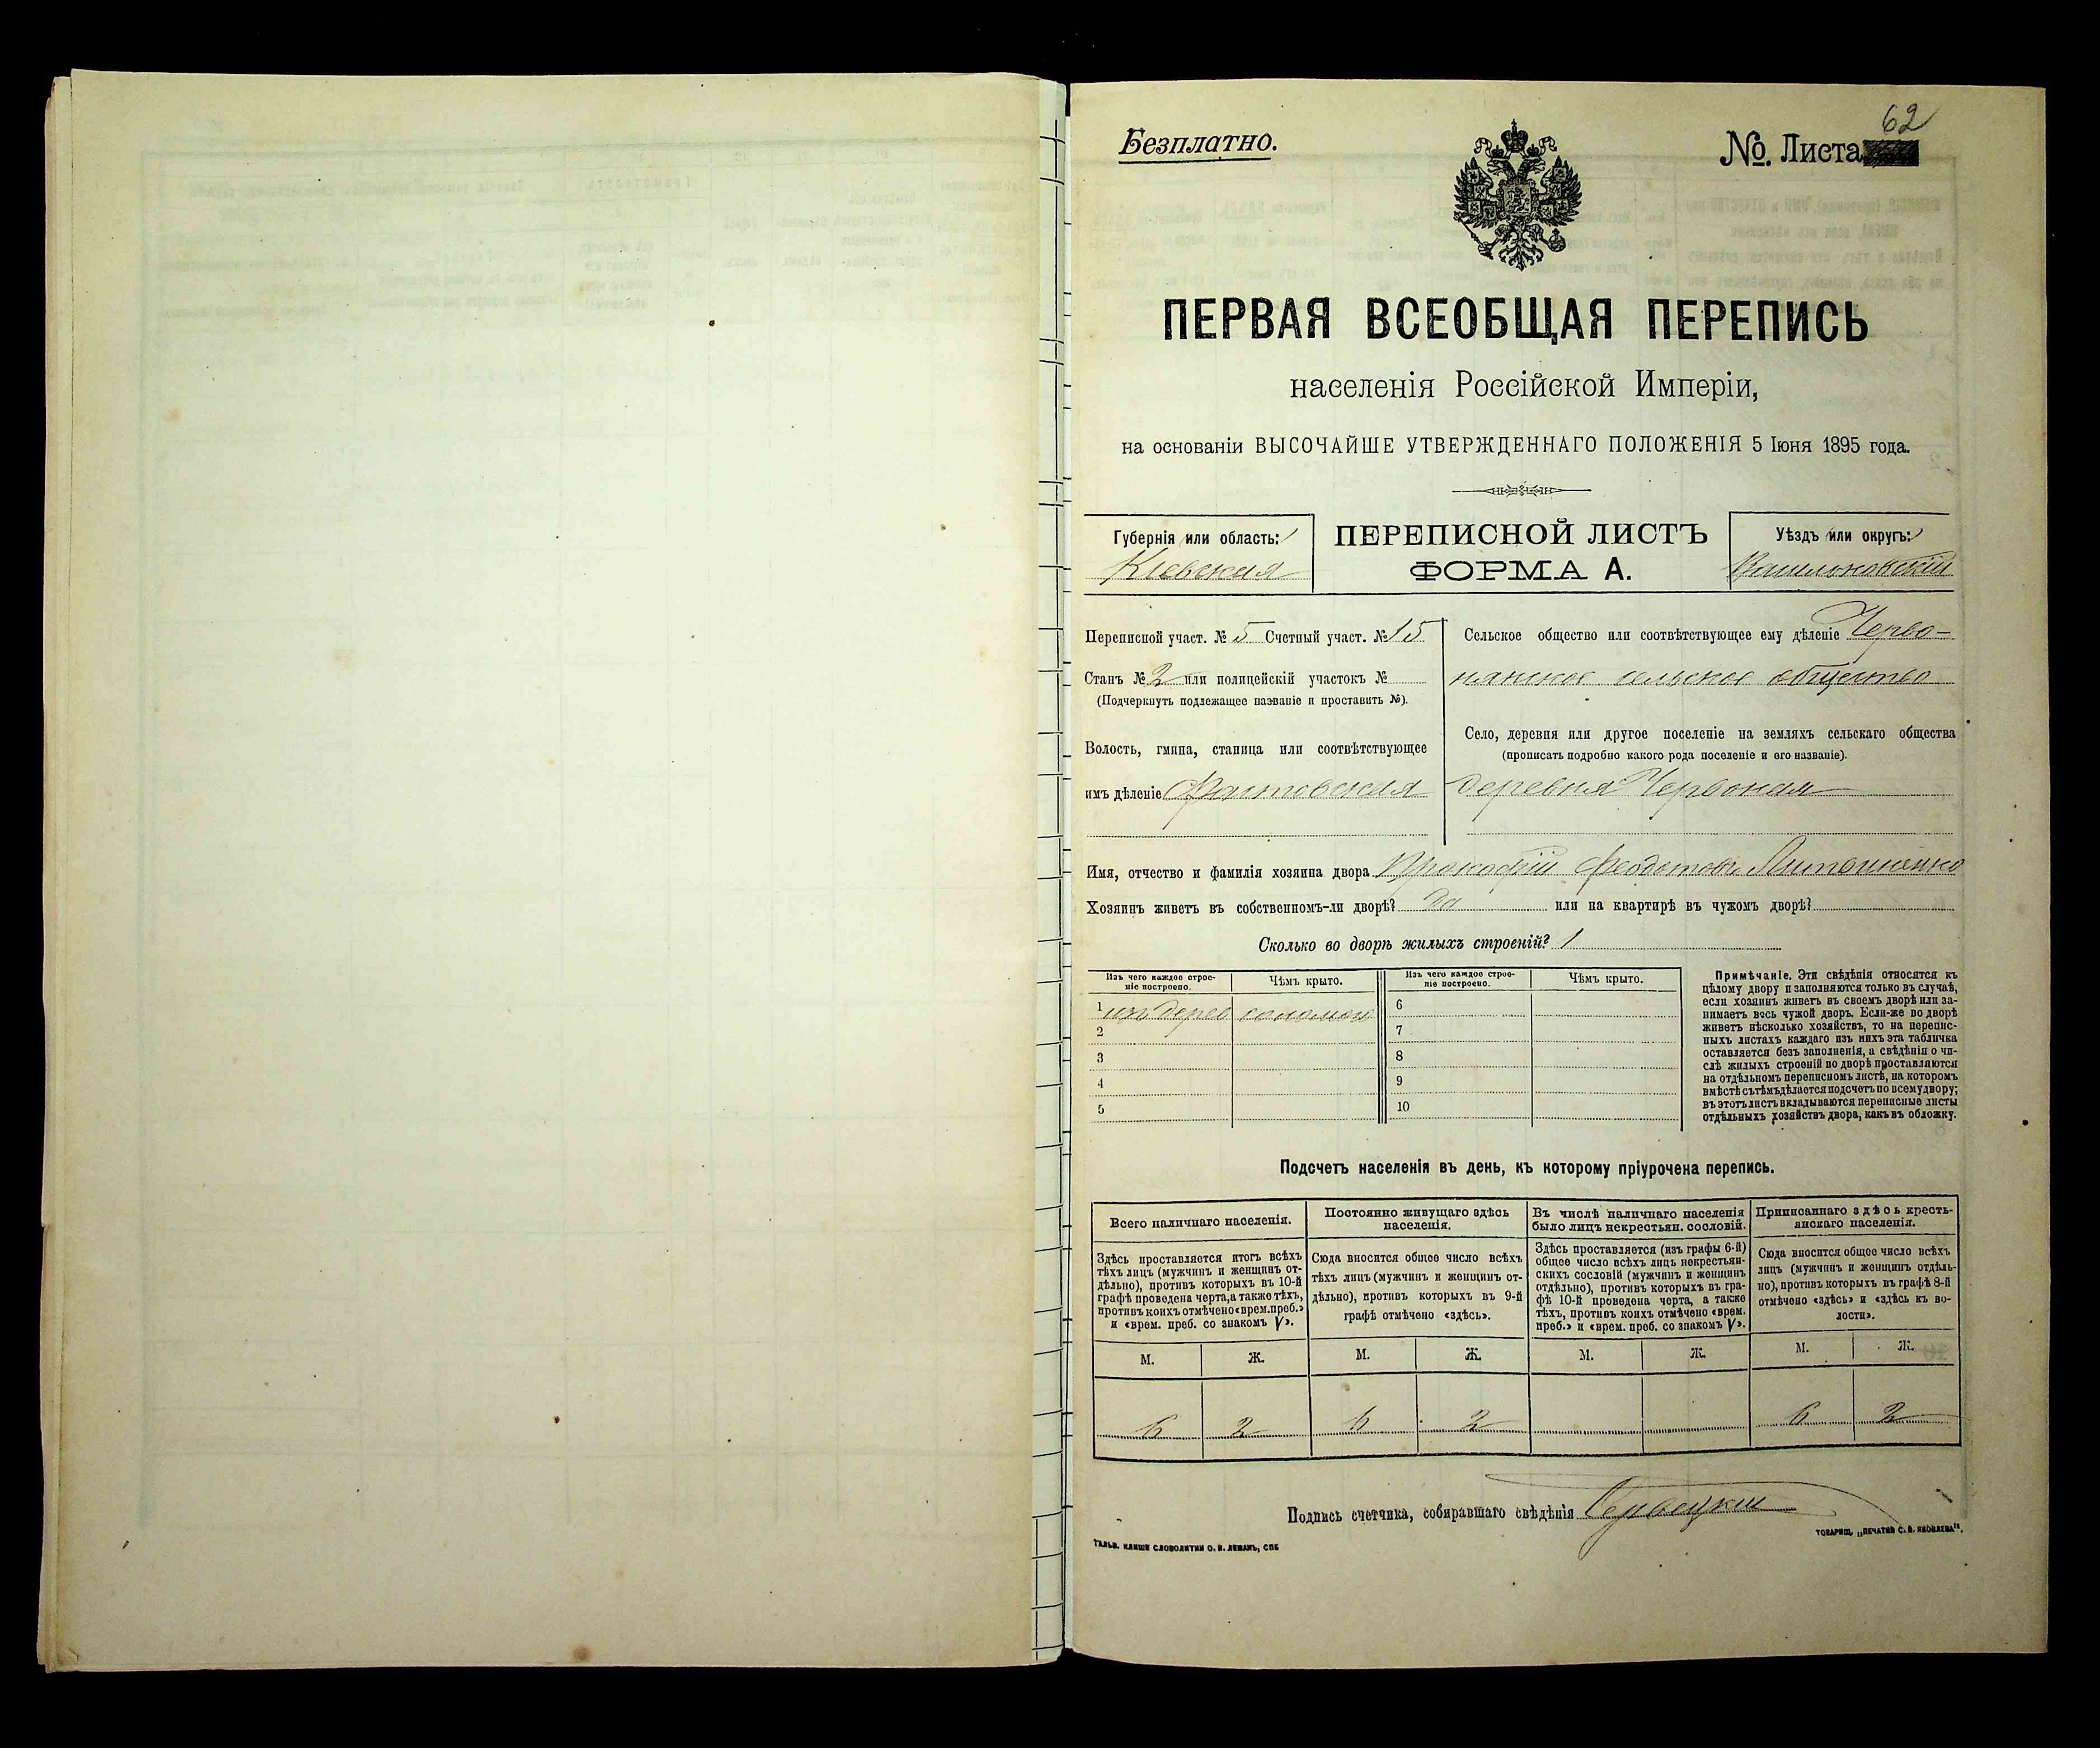 Безплатно.
№. Листа
62
ПЕРВАЯ ВСЕОБЩАЯ ПЕРЕПИСЬ
населенія Россійской Имперіи,
на основаніи ВЫСОЧАЙШЕ УТВЕРЖДЕННАГО ПОЛОЖЕНІЯ 5 Іюня 1895 года.
Губернія или область:
Кіевская
ПЕРЕПИСНОЙ ЛИСТЪ
ФОРМА А.
Уѣздъ или округъ:
Васильковскій
Переписной участ. № 5 Счетный участ. № 15
Станъ № 2 или полицейскій участокъ №
(Подчеркнуть подлежащее названіе и проставить №).
Волость, гмина, станица или соотвѣтствующее
имъ дѣленіе Фастовская
Сельское общество или соотвѣтствующее ему дѣленіе Черво-
нянское сельское общество
Село, деревня или другое поселеніе на земляхъ сельскаго общества
(прописать подробно какого рода поселеніе и его названіе).
деревня Червоная
Имя, отчество и фамилія хозяина двора Прокофій Феодотовъ
Хозяинъ живетъ въ собственномъ-ли дворѣ? да или на квартирѣ въ чужомъ дворѣ?
Сколько во дворѣ жилыхъ строеній? 1
Изъ чего каждое строе-
ніе построено.
Чѣмъ крыто.
Изъ чего каждое строе-
ніе построено.
Чѣмъ крыто.
1 изъ дерев соломой
2
3
4
5
6
7
8
9
10
Примѣчаніе. Эти свѣдѣнія относятся къ
цѣлому двору и заполняются только въ случаѣ,
если хозяинъ живетъ въ своемъ дворѣ или за-
нимаетъ весь чужой дворъ. Если-же во дворѣ
живетъ нѣсколько хозяйствъ, то на перепис-
ныхъ листахъ каждаго изъ нихъ эта табличка
оставляется безъ заполненія, а свѣдѣнія о чи-
слѣ жилыхъ строеній во дворѣ проставляются
на отдѣльномъ переписномъ листѣ, на которомъ
вмѣстѣ съ тѣмъ дѣлается подсчетъ по всему двору;
въ этотъ листъ вкладываются переписные листы
отдѣльныхъ хозяйствъ двора, какъ въ обложку.
Подсчетъ населенія въ день, къ которому пріурочена перепись.
Всего наличнаго населенія.
Здѣсь проставляется итогъ всѣхъ
тѣхъ лицъ (мужчинъ и женщинъ от-
дѣльно), противъ которыхъ въ 10-й
графѣ проведена черта, а также тѣхъ,
противъ коихъ отмѣчено «врем. преб.»
и «врем. преб. со знакомъ V».
М. Ж.
6 2
Постоянно живущаго здѣсь
населенія.
Сюда вносится общее число всѣхъ
тѣхъ лицъ (мужчинъ и женщинъ от-
дѣльно), противъ которыхъ въ 9-й
графѣ отмѣчено «здѣсь».
М. Ж.
6 2
Въ числѣ наличнаго населенія
было лицъ некрестьян. сословій.
Здѣсь проставляется (изъ графы 6-й)
общее число всѣхъ лицъ некрестьян-
скихъ сословій (мужчинъ и женщинъ
отдѣльно), противъ которыхъ въ гра-
фѣ 10-й проведена черта, а также
тѣхъ, противъ коихъ отмѣчено «врем.
преб.» и «врем. преб. со знакомъ V».
М. Ж.
Приписаннаго здѣсь кресть-
янскаго населенія.
Сюда вносится общее число всѣхъ
лицъ (мужчинъ и женщинъ отдѣль-
но), противъ которыхъ въ графѣ 8-й
отмѣчено «здѣсь» и «здѣсь къ во-
лости».
М. Ж.
6 2
Подпись счетчика, собиравшаго свѣдѣнія
ГАЛЬВ. КЛИШЕ СЛОВОЛИТНИ О. И. ЛЕМАНЪ, СПБ
ТОВАРИЩ. „ПЕЧАТНЯ С. П. ЯКОВЛЕВА".